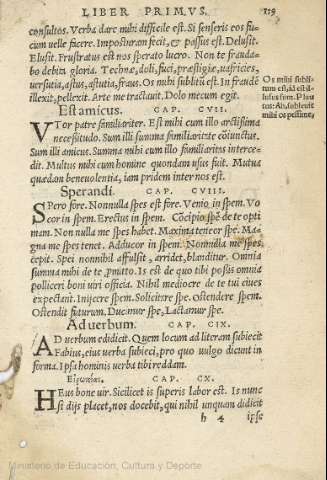 LIBER PRIMVS. 119
consultos. Verba dare mihi difficile est. Si senseris eos fu-
cum uelle facere. Imposturam fecit, & passus est. Delusit.
Elusit. Frustratus est nos sperato lucro. Non te frauda-
bo debita gloria. Technæ, doli, fuci, præstigiæ, uafricies,
uersutia, astus, astutia, fraus. Os mihi subleuit. In fraudē
illexit, pellexit. Arte me tractauit. Dolo mecum egit.
Os mihi subli-
tum est, id est il-
mihi os pessime,
Est amicus. CAP. CVII.
VTor patre familiariter. Est mihi cum illo arctissima
necessitudo. Sum illi summa familiaritate cōiunctus.
Sum illi amicus. Summa mihi cum illo familiaritas interce-
dit. Multus mihi cum homine quondam usus fuit. Mutua
quædam beneuolentia, iam pridem inter nos est.
Sperandi. CAP. CVIII.
SPero fore. Nonnulla spes est fore. Venio in spem. Vo
cor in spem. Erectus in spem. Cōcipio spē de te opti
mam. Non nulla me spes habet. Maxima teneor spe. Ma-
gna me spes tenet. Adducor in spem. Nonnulla me spes
cepit. Spei nonnihil affulsit, arridet, blanditur. Omnia
summa mihi de te, pmitto. Is est de quo tibi possis omnia
polliceri boni uiri officia. Nihil mediocre de te tui ciues
expectant. Inijcere spem. Solicitare spe. Ostendere spem.
Ostendit futurum. Ducimur spe, Lactamur spe.
Ad uerbum. CAP. CIX.
AD uerbum edidicit. Quem locum ad literam subiecit
Fabius, eius uerba subieci, pro quo uulgo dicunt in
forma. Ipsa hominis uerba tibi reddam.
CAP. CX.
HEus bone uir. Scilicet is superis labor est. Is nunc
si dijs placet, nos docebit, qui nihil unquam didicit
h 4 ipse
Ministerio de Educación, Cultura y Deporte